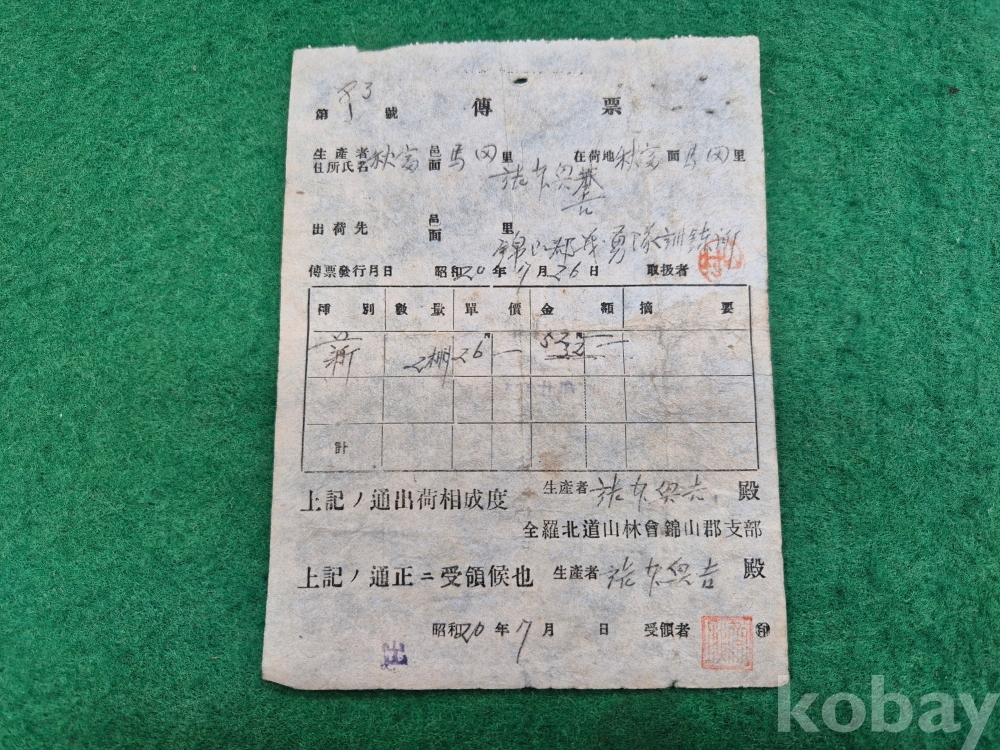 第 93 號 傳票
生產者住所氏名 秋富 邑面 馬田 里 在荷地 秋富 面 馬田 里
出荷先 邑面 里
錦山郡 勇隊訓鍊所
傳票發行月日 昭和20年7月26日 取扱者
種別 數量 單價 金額 摘要
薪 2棚 26円 52円
計
上記ノ通出荷相成度 生產者 殿
全羅北道山林會錦山郡支部
上記ノ通正ニ受領候也 生產者 殿
昭和20年7月 日 受領者 印
kobay